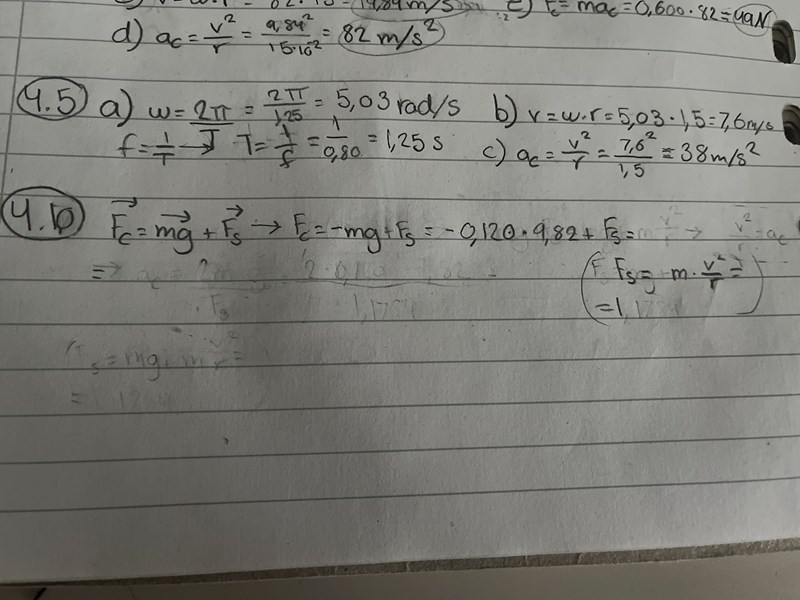 = 19,89 m/s c) Fc = mac = 0,600 · 82 = 49N
d) ac = v²/r = 9,84²/15·10² = 82 m/s²
4.5) a) w = 2π/T = 2π/1,25 = 5,03 rad/s b) v = w·r = 5,03 · 1,5 = 7,6 m/s
f = 1/T → T = 1/f = 1/0,80 = 1,25 s c) ac = v²/r = 7,6²/1,5 = 38 m/s²
4.10) Fc = mg + Fs → Fc = -mg + Fs = -0,120 · 9,82 + Fs =
⇒ Fs = m · v²/r =
= 1,
s = mg
=